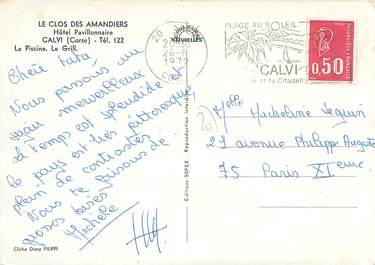 LE CLOS DES AMANDIERS
Hôtel Pavillonnaire
CALVI (Corse) - Tél. 122
La Piscine. Le Grill.
Nous passons un
séjour merveilleux
le temps est splendide
le pays est très pittoresque
plein de contrastes.
Nous te faisons de
grosses bises
Michèle
Cliché Dany FILIPPI
Editions SOFER - Reproduction interdite
20
1972
PLAGE AU SOLEIL
CALVI
et sa Citadelle
0,50
Melle Micheline Seguin
21 avenue Philippe Auguste
75 Paris XIeme